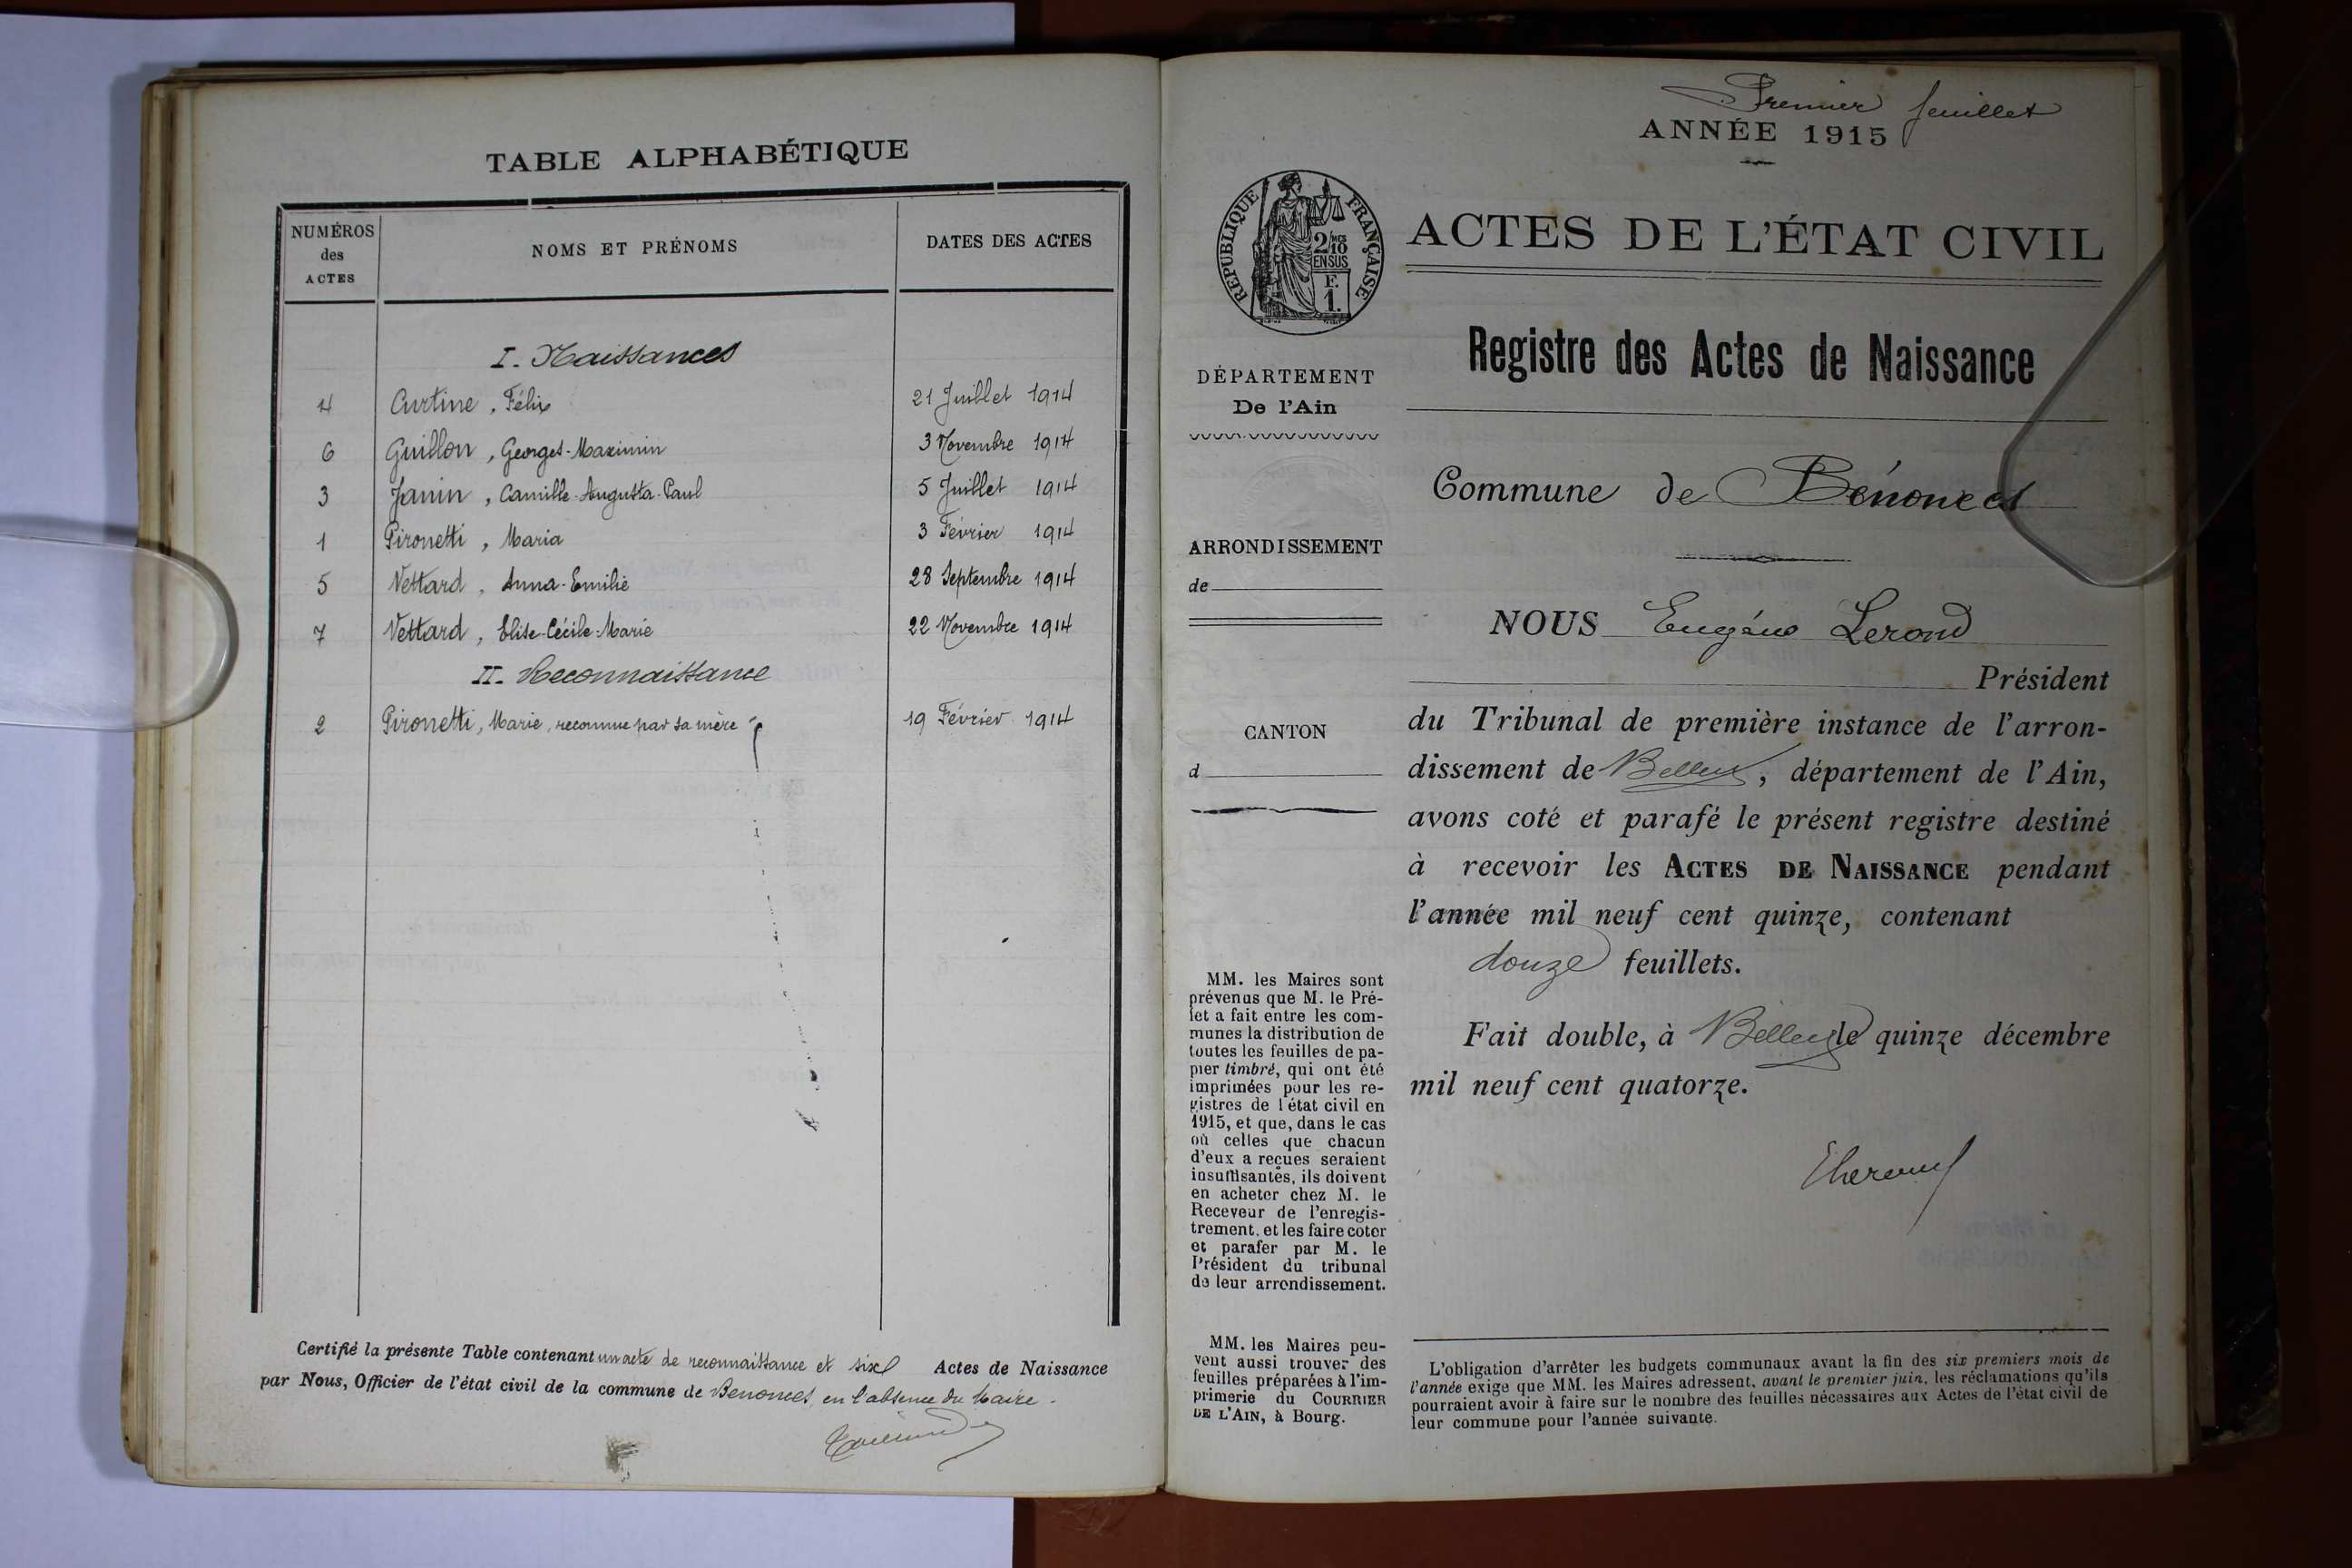 TABLE ALPHABÉTIQUE
NUMÉROS des ACTES
NOMS ET PRÉNOMS
DATES DES ACTES
I. Naissances
4 Curtine, Félix 21 Juillet 1914
6 Guillon, Georges-Maximin 3 Novembre 1914
3 Janin, Camille-Augusta-Paul 5 Juillet 1914
1 Pironetti, Maria 3 Février 1914
5 Vettard, Anna-Emilie 28 Septembre 1914
7 Vettard, Elise-Cécile-Marie 22 Novembre 1914
II. Reconnaissance
2 Pironetti, Marie, reconnue par sa mère 19 Février 1914
Certifié la présente Table contenant un acte de reconnaissance et six Actes de Naissance
par Nous, Officier de l'état civil de la commune de Benonces, en l'absence du Maire.
Premier feuillet
ANNÉE 1915
RÉPUBLIQUE FRANÇAISE
2/10 MES
EN SUS
F.
1.
ACTES DE L'ÉTAT CIVIL
Registre des Actes de Naissance
DÉPARTEMENT
De l'Ain
ARRONDISSEMENT
de
CANTON
d
MM. les Maires sont
prévenus que M. le Pré-
fet a fait entre les com-
munes la distribution de
toutes les feuilles de pa-
pier timbré, qui ont été
imprimées pour les re-
gistres de l'état civil en
1915, et que, dans le cas
où celles que chacun
d'eux a reçues seraient
insuffisantes, ils doivent
en acheter chez M. le
Receveur de l'enregis-
trement, et les faire coter
et parafer par M. le
Président du tribunal
de leur arrondissement.
MM. les Maires peu-
vent aussi trouver des
feuilles préparées à l'im-
primerie du COURRIER
DE L'AIN, à Bourg.
Commune de Bénonces
NOUS Eugène Lerond
Président
du Tribunal de première instance de l'arron-
dissement de Belley, département de l'Ain,
avons coté et parafé le présent registre destiné
à recevoir les ACTES DE NAISSANCE pendant
l'année mil neuf cent quinze, contenant
douze feuillets.
Fait double, à Belley le quinze décembre
mil neuf cent quatorze.
L'obligation d'arrêter les budgets communaux avant la fin des six premiers mois de
l'année exige que MM. les Maires adressent, avant le premier juin, les réclamations qu'ils
pourraient avoir à faire sur le nombre des feuilles nécessaires aux Actes de l'état civil de
leur commune pour l'année suivante.